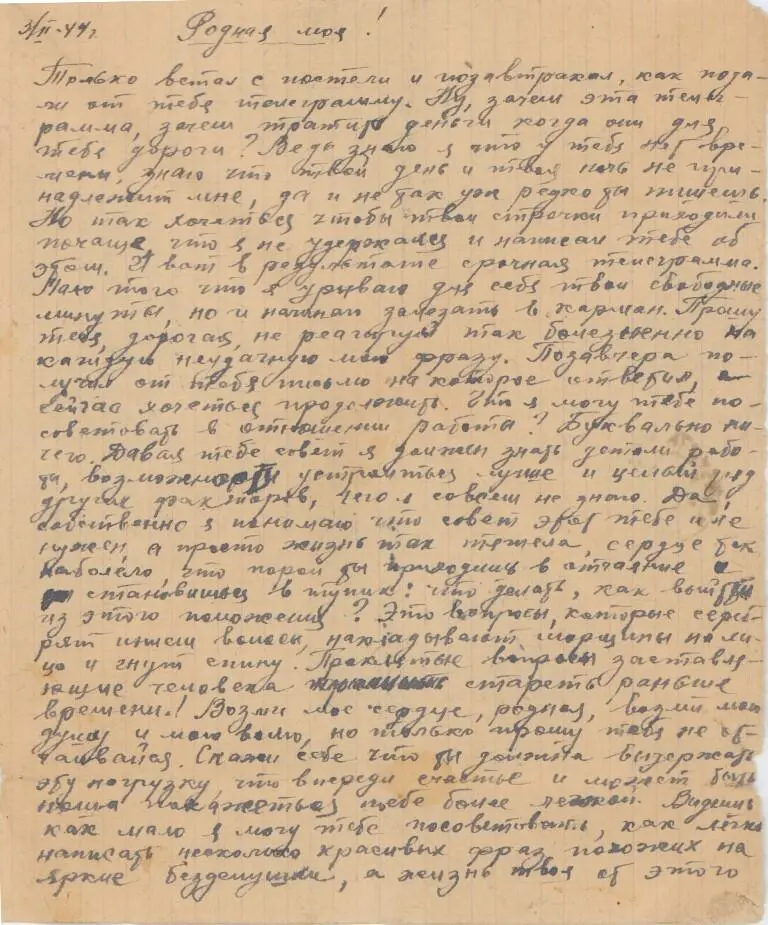 3/II-44г.
Родная моя!
Только встал с постели и позавтракал, как пода-
ли от тебя телеграмму. Ну, зачем эта телег-
рамма, зачем тратить деньги когда они для
тебя дороги? Ведь знаю я что у тебя нет вре-
мени, знаю что твой день и твоя ночь не при-
надлежит мне, да и не так уж редко ты пишешь.
Но так хочеться чтобы твои строчки приходили
почаще, что я не удержался и написал тебе об
этом. И вот в результате срочная телеграмма.
Мало того что я урываю для себя твои свободные
минуты, но и начинаю залезать в карман. Прошу
тебя, дорогая, не реагируй так болезненно на
каждую неудачную мою фразу. Позавчера по-
лучил от тебя письмо на которое ответил, а
сейчас хочеться продолжить. Что я могу тебе по-
советовать в отношении работы? Буквально ни-
чего. Давая тебе совет я должен знать детали рабо-
ты, возможности устроиться лучше и целый ряд
других факторов, чего я совсем не знаю. Да,
собственно я понимаю что совет этот тебе и не
нужен, а просто жизнь так тяжела, сердце так
наболело что порой ты приходишь в отчаяние и
становишься в тупик: что делать, как выйти
из этого положения? Это вопросы, которые сереб-
рят инеем волосы, накладывают морщины на ли-
цо и гнут спину. Проклятые вопросы заставля-
ющие человека стареть раньше
времени! Возми мое сердце, родная, возми мою
душу и мою волю, но только прошу тебя не от-
чаивайся. Скажи себе что ты должна выдержать
эту нагрузку, что впереди счастье и может быть
ноша покажеться тебе более легкой. Видишь
как мало я могу тебе посоветовать, как легко
написать несколько красивых фраз похожих на
яркие безделушки, а жизнь твоя от этого